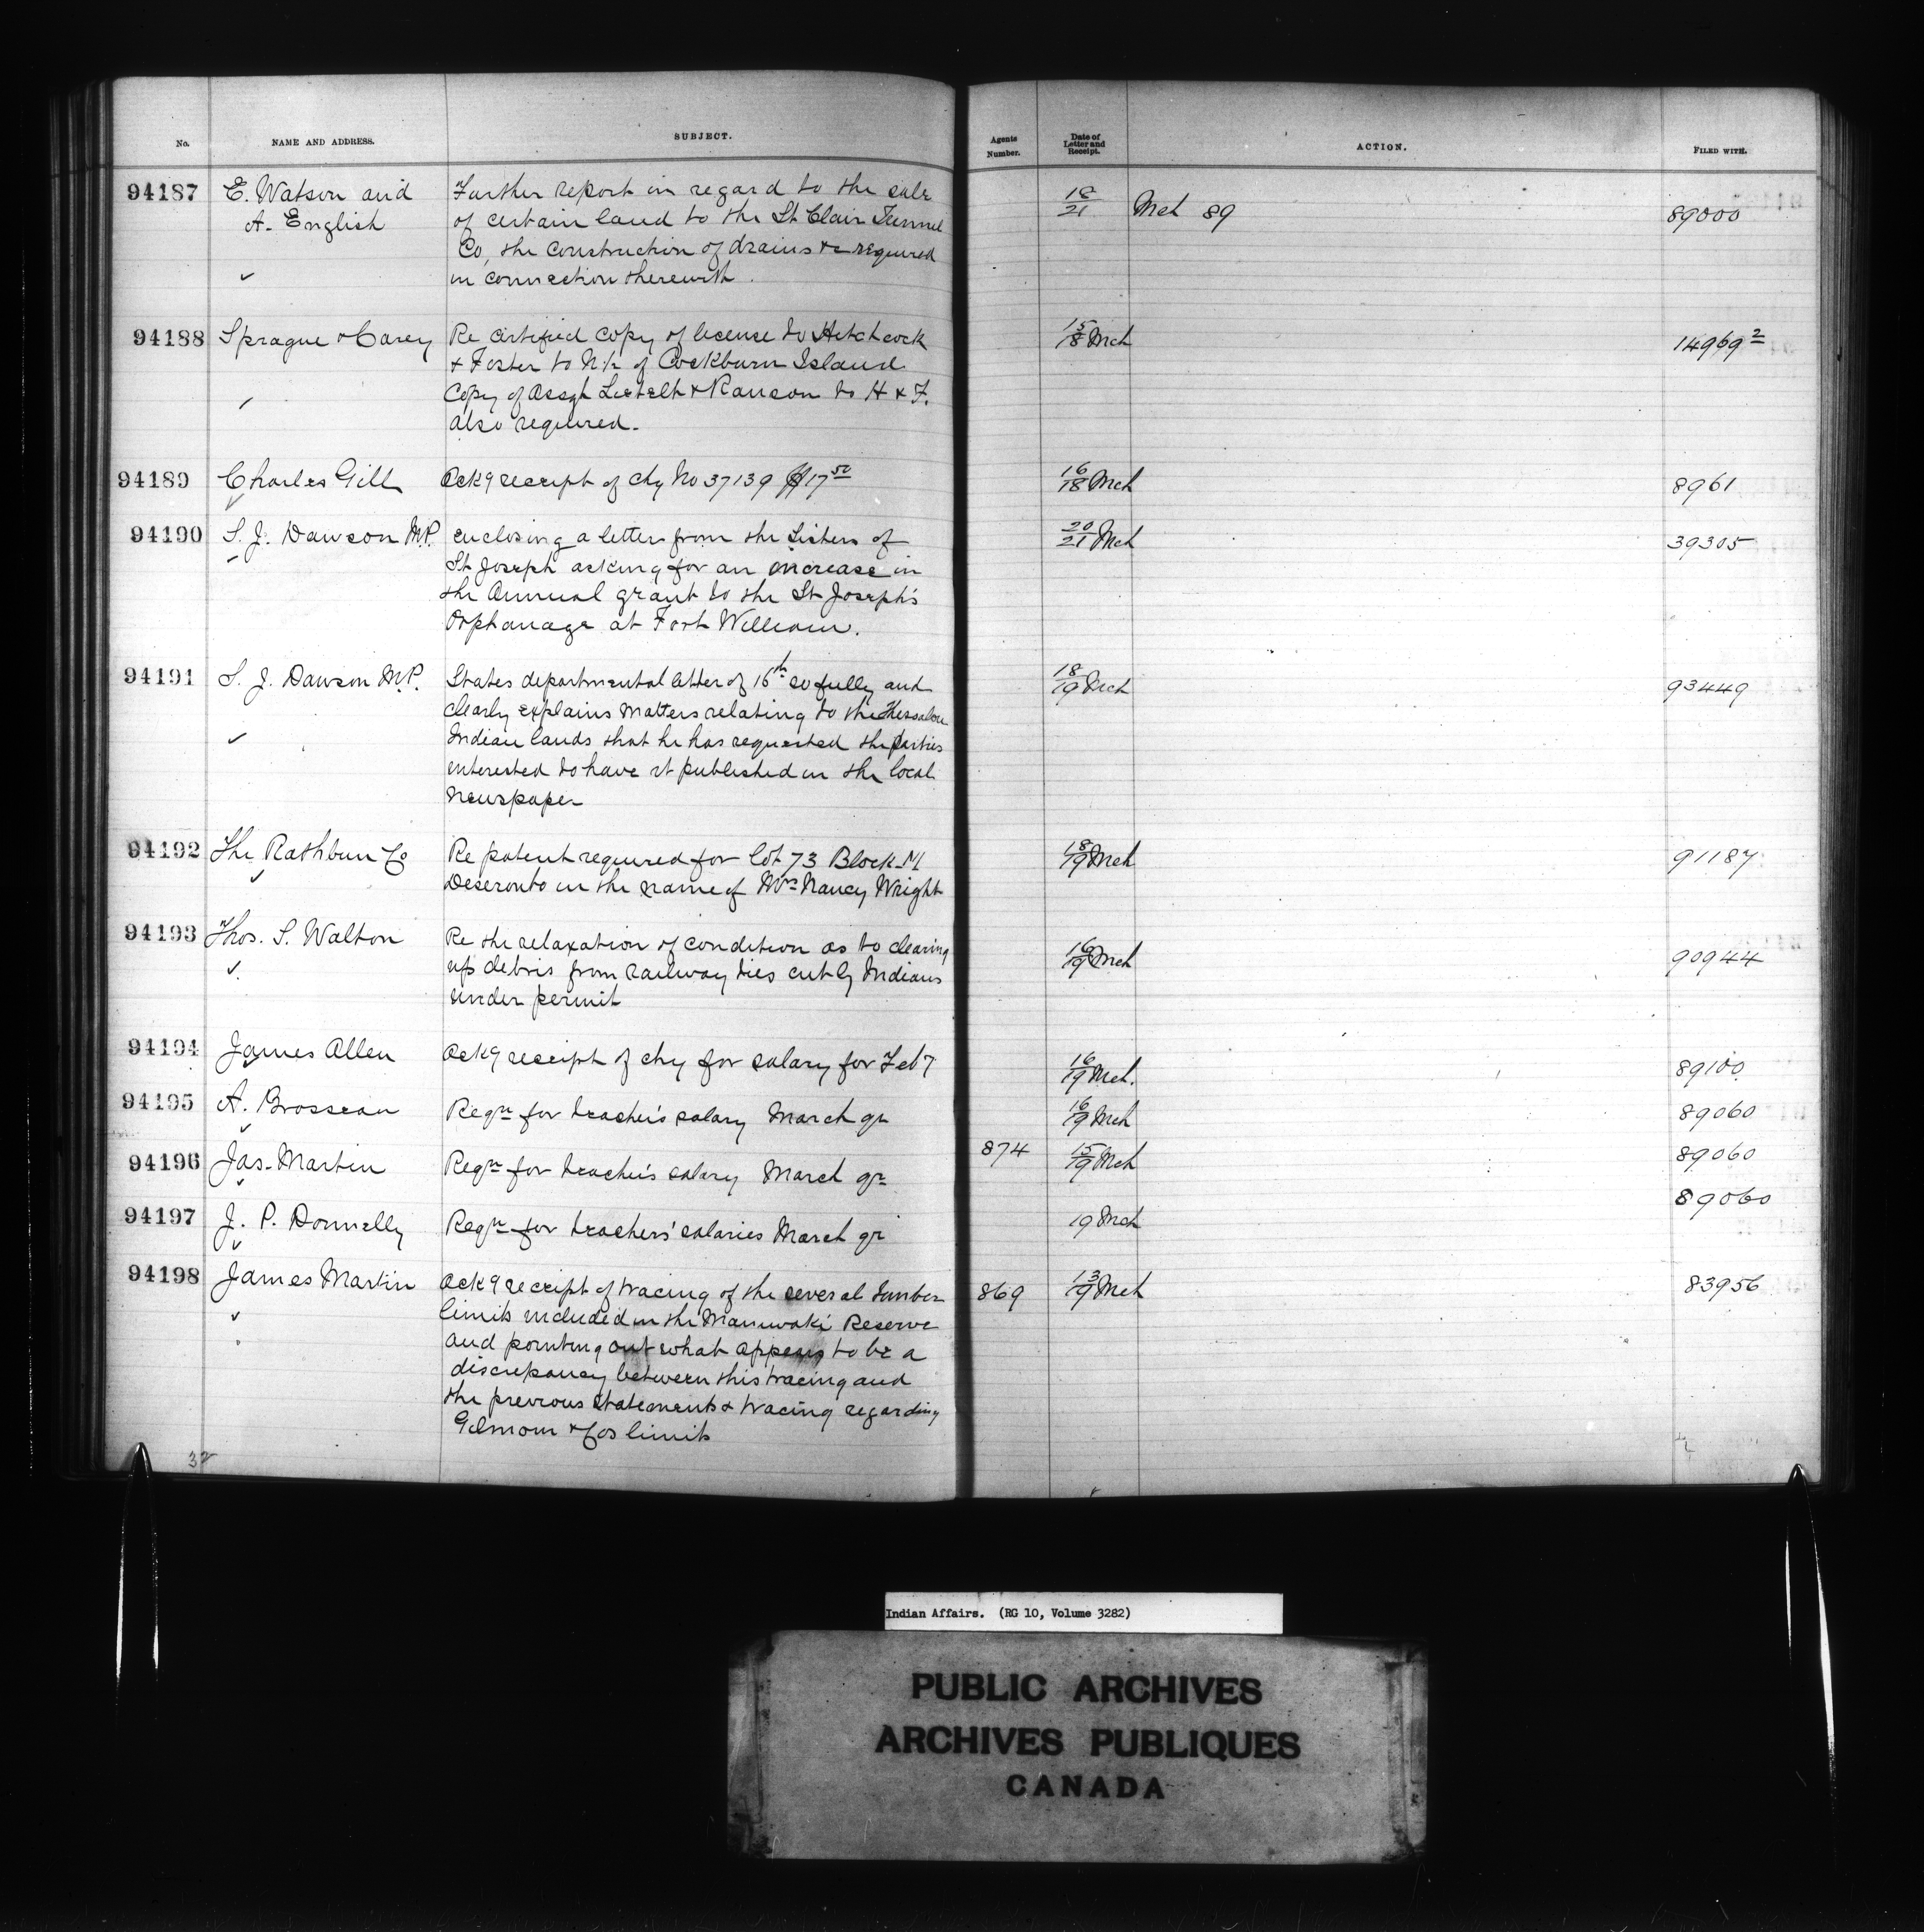 No. NAME AND ADDRESS. SUBJECT. Agents Number. Date of Letter and Receipt. ACTION. FILED WITH.
94187 E. Watson and Further report in regard to the sale 18/21 Mch 89 89000
A. English of certain land to the St Clair Tunnel
Co, the construction of drains &c required
in connection therewith.
94188 Sprague & Carey Re certified copy of license to Hitchcock 15/18 Mch 14969 2
& Foster to N½ of Cockburn Island
Copy of assgt & Ranson to H & F.
also required.
94189 Charles Gill Ackg receipt of chq No 37139 $17 50 16/18 Mch 8961
94190 S. J. Dawson M.P. enclosing a letter from the Sisters of 20/21 Mch 39305
St Joseph asking for an increase in
the Annual grant to the St Joseph's
Orphanage at Fort William.
94191 S. J. Dawson M.P. States departmental letter of 16th so fully and 18/19 Mch 93449
clearly explains matters relating to the Thessalon
Indian lands that he has requested the parties
interested to have it published in the local
newspaper
94192 The Rathbun Co Re patent required for lot 73 Block M 18/19 Mch 91187
Deseronto in the name of Mrs Nancy Wright
94193 Thos. S. Walton Re the relaxation of condition as to clearing 16/19 Mch 90944
up debris from railway ties cut by Indians
under permit
94194 James Allen Ackg receipt of chq for salary for Feby 16/19 Mch. 89100
94195 A. Brosseau Reqn for teacher's salary March qr 16/19 Mch 89060
94196 Jas. Martin Reqn for teacher's salary March qr 874 15/19 Mch 89060
94197 J. P. Donnelly Reqn for teachers' salaries March qr 19 Mch 89060
94198 James Martin Ackg receipt of tracing of the several timber 869 13/19 Mch 83956
limits included in the Maniwaki Reserve
and pointing out what appears to be a
discrepancy between this tracing and
the previous statements & tracing regarding
Gilmour & Cos limits
32
Indian Affairs. (RG 10, Volume 3282)
PUBLIC ARCHIVES
ARCHIVES PUBLIQUES
CANADA